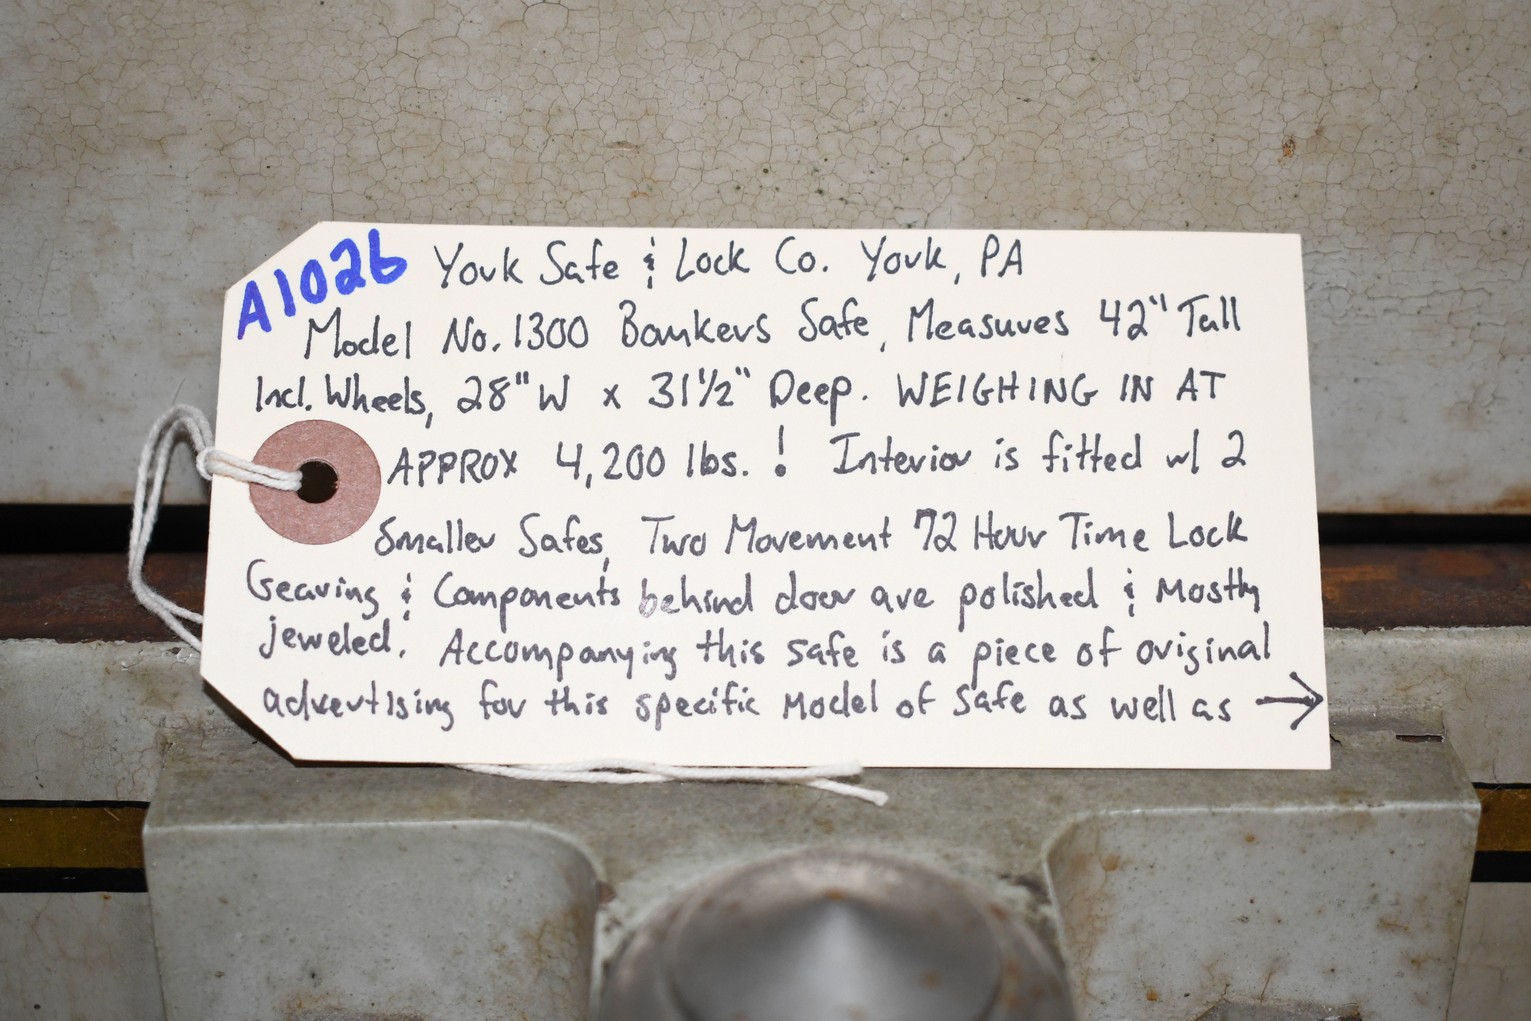 A1026 York Safe & Lock Co. York, PA
Model No. 1300 Bankers Safe, Measures 42" Tall
Incl. Wheels, 28" W x 31 1/2" Deep. WEIGHING IN AT
APPROX 4,200 lbs. ! Interior is fitted w/ 2
Smaller Safes, Two Movement 72 Hour Time Lock
Gearing & Components behind door are polished & Mostly
jeweled. Accompanying this safe is a piece of original
advertising for this specific Model of Safe as well as →